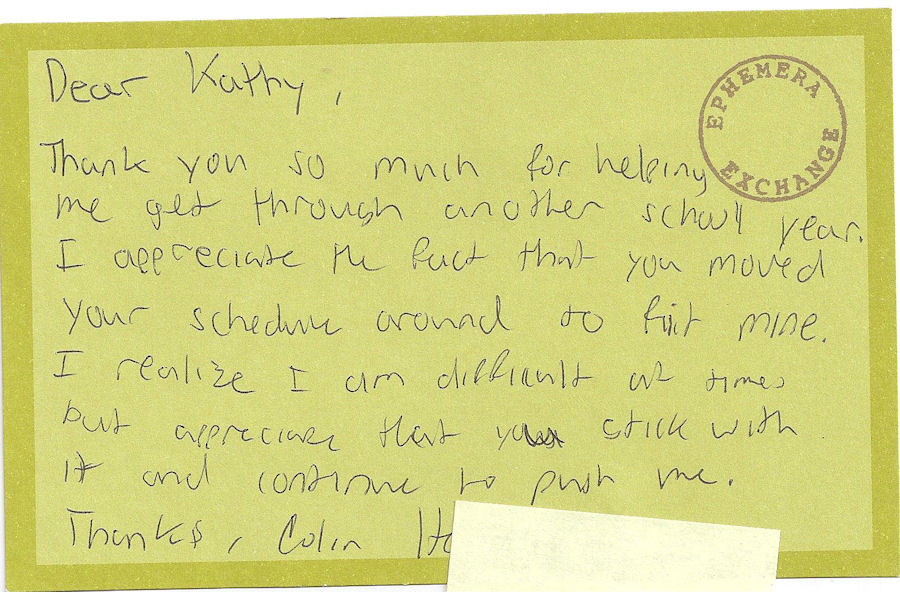 Dear Kathy,
EPHEMERA EXCHANGE
Thank you so much for helping
me get through another school year.
I appreciate the fact that you moved
your schedule around to fit mine.
I realize I am difficult at times
but appreciate that you stick with
it and continue to push me.
Thanks, Colin